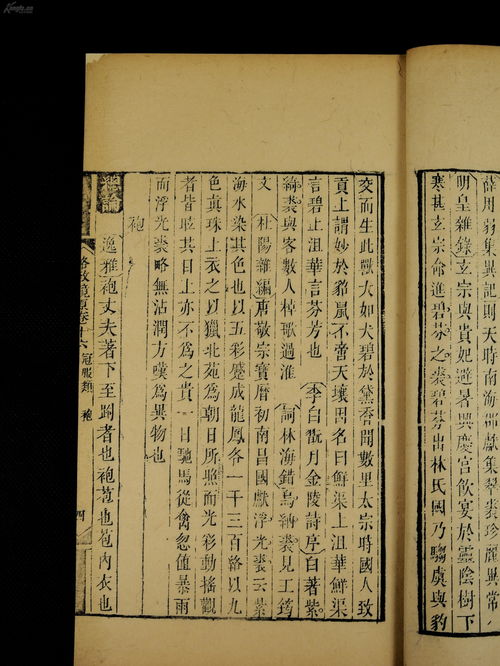 Kongfz.cn
薛用弱集異記則天時南海郡獻集翠裘珍麗異常
明皇雜錄玄宗與貴妃避暑興慶宮飲宴於靈陰樹下
寒甚玄宗命進碧芬之裘碧芬出林氏國乃騶虞與豹
交而生此獸大如犬碧於黛香聞數里太宗時國人致
貢上謂妙於鼠不啻天壤因名曰鮮渠上沮華鮮渠
言碧上沮華言芬芳也李白翫月金陵詩序白著紫
綺裘與客數人棹歌過淮詞林海錯烏納裘見工筠
文杜陽雜編唐敬宗寶曆初南昌國獻浮光裘云紫
海水染其色也以五彩蹙成龍鳳各一千三百絡以九
色真珠上衣之以獵北苑為朝日所照而光彩動搖觀
者皆眩其目上亦不為之貴一日馳馬從禽忽値暴雨
而浮光裘略無沾潤方嘆為異物也
袍
逸雅袍丈夫著下至跗者也袍苞也苞內衣也
格致鏡原卷十六 冠服類 袍 四